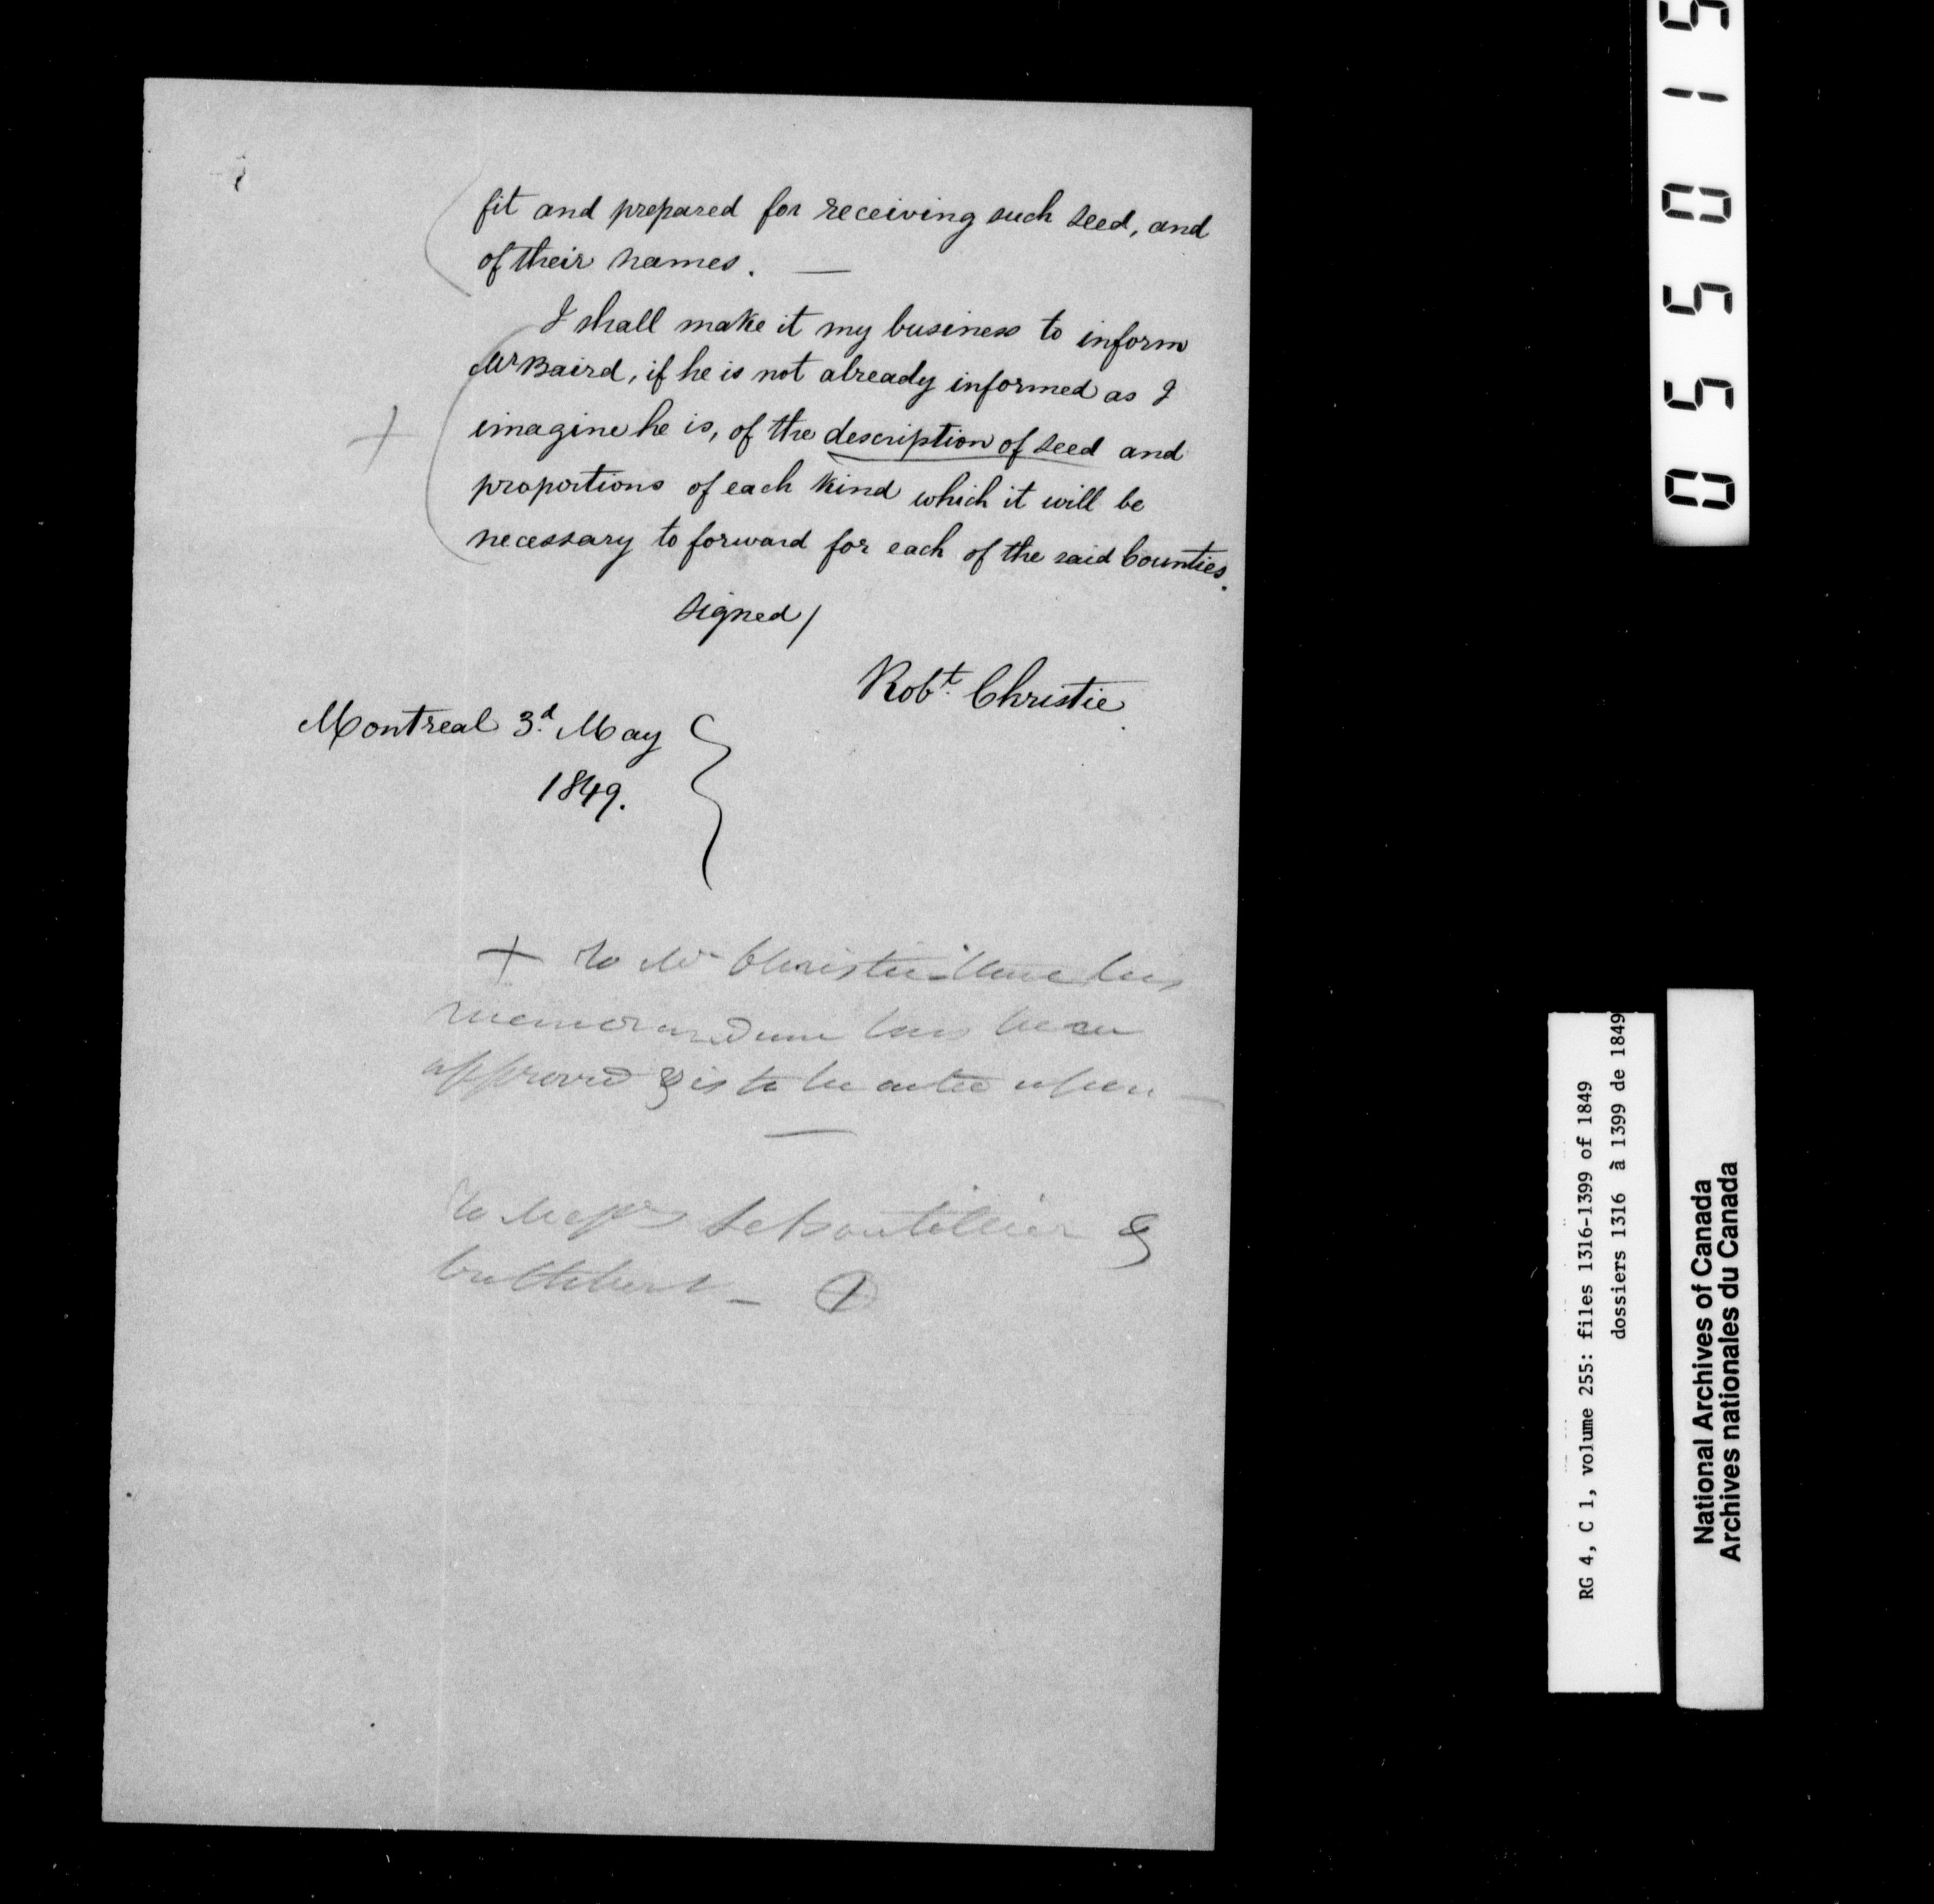 fit and prepared for receiving such seed, and
of their names. —
I shall make it my business to inform
Mr Baird, if he is not already informed as I
imagine he is, of the description of seed and
proportions of each kind which it will be
necessary to forward for each of the said Counties.
Signed /
Robt. Christie
Montreal 3d. May
1849.
+ To Mr Christie that his
memorandum has been
approved & is to be acted upon —
To Messrs LeBoutillier &
Cuthbert —
055015
RG 4, C 1, volume 255: files 1316-1399 of 1849
dossiers 1316 à 1399 de 1849
National Archives of Canada
Archives nationales du Canada